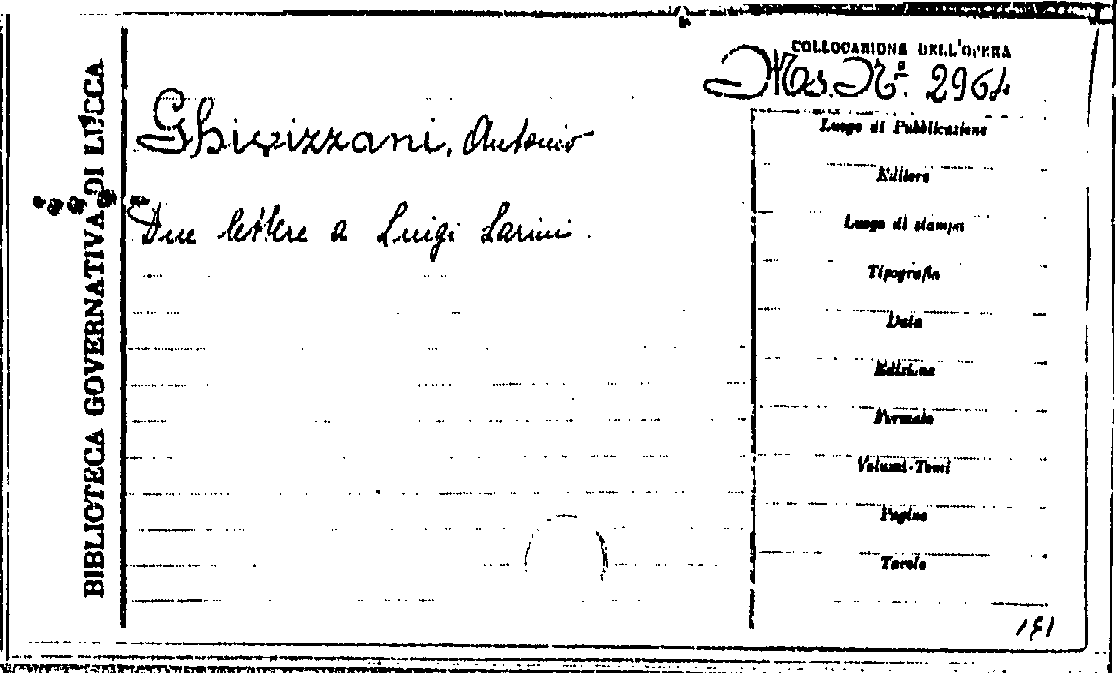 BIBLIOTECA GOVERNATIVA DI LUCCA
COLLOCAZIONE DELL'OPERA
Ms. N.º 2964
Ghivizzani, Antonio
Due lettere a Luigi Sarini.
Luogo di Pubblicazione
Editore
Luogo di stampa
Tipografia
Data
Edizione
Formato
Volumi-Tomi
Pagine
Tavole